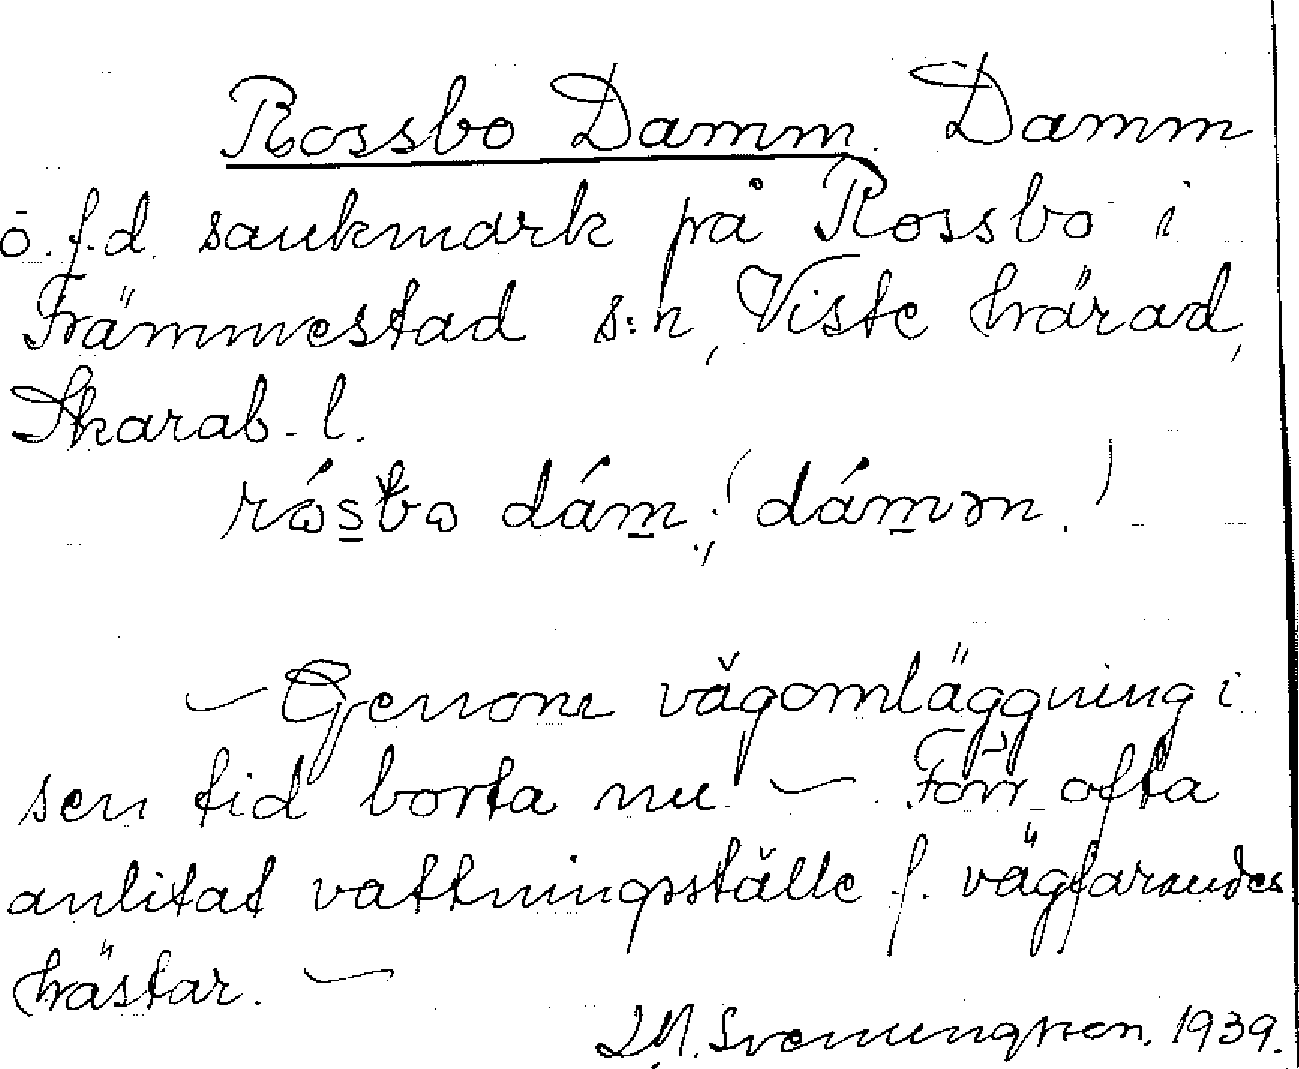 Rossbo Damm. Damm
o. f.d. sankmark på Rossbo i
Främmestad s:n, Viste härad,
Skarab. l.
rósbo dám; (dámən.)
— Genom vägomläggning i
sen tid borta nu. — Förr ofta
anlitat vattningsställe f. vägfarandes
hästar. —
Svenungsson. 1939.